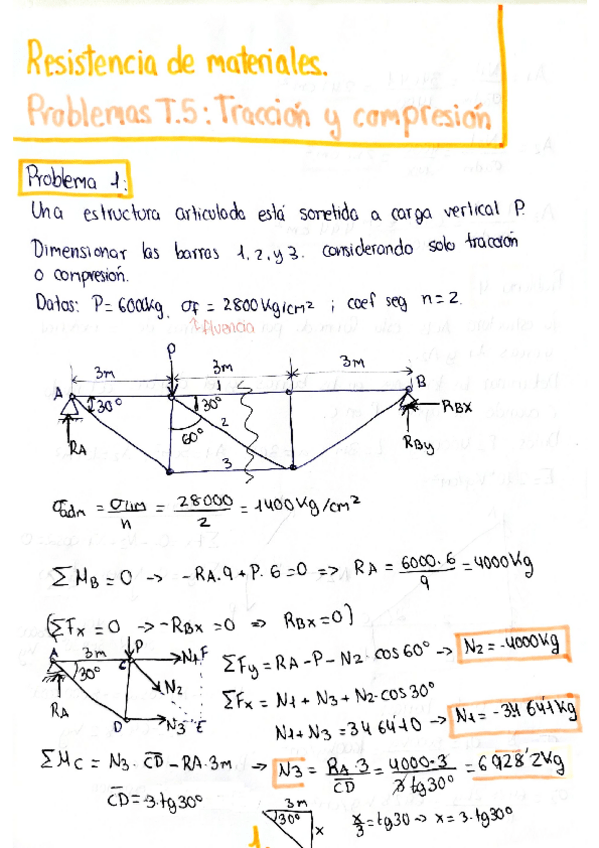 Resistencia de materiales.
Problemas T.5: Tracción y compresión
Problema 1:
Una estructura articulada está sometida a carga vertical P.
Dimensionar las barras 1, 2, y 3. considerando solo tracción
o compresión.
Datos: P= 6000kg. σf = 2800 Kg/cm² ; coef seg n=2.
fluencia
P
3m 3m 3m
A 30° 1 30° B
2 RBX
60°
RA 3 RBy
σadm = σlim / n = 28000 / 2 = 1400 Kg/cm²
ΣMB = 0 → -RA.9 + P.6 = 0 => RA = 6000.6 / 9 = 4000 Kg
(ΣFx = 0 → -RBx = 0 => RBx = 0)
A 3m C P N1 F
30° N2
RA
D N3 E
ΣFy = RA - P - N2 cos 60° → N2 = -4000Kg
ΣFx = N1 + N3 + N2·cos 30°
N1 + N3 = 34 64'10 → N1 = -34 641 Kg
ΣMC = N3·CD - RA·3m → N3 = RA·3 / CD = 4000·3 / 3 tg30° = 6928'2Kg
CD = 3·tg30°
3m
30° x
x/3 = tg30 → x = 3·tg30°
1.